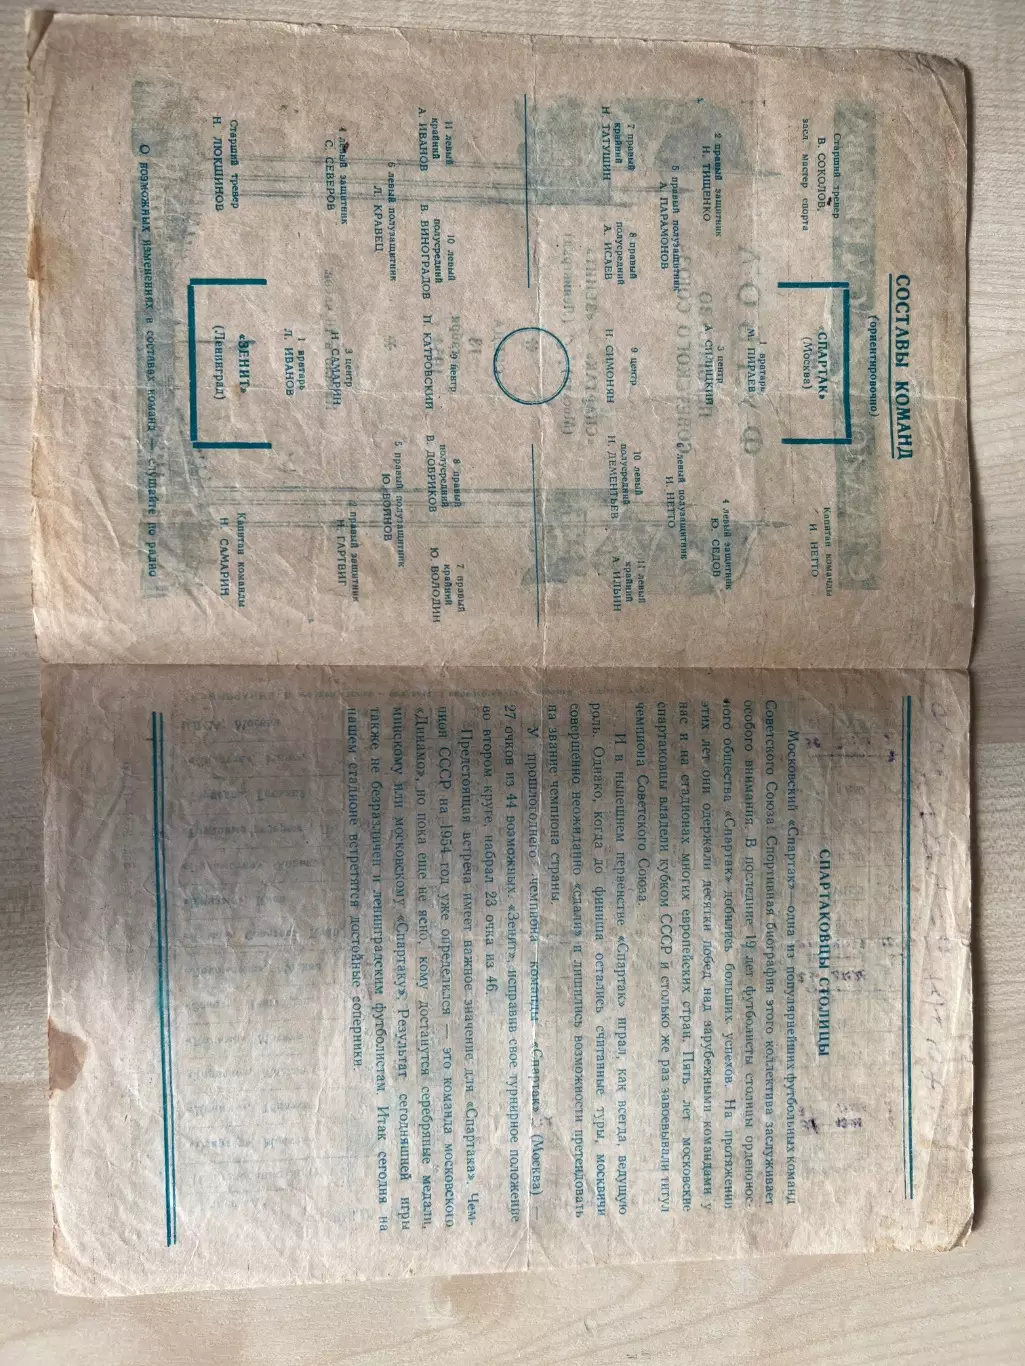 СОСТАВЫ КОМАНД
(ориентировочно)
Старший тренер
В. СОКОЛОВ,
засл. мастер спорта
«СПАРТАК»
(Москва)
Капитан команды
И. НЕТТО
1 вратарь
М. ПИРАЕВ
2 правый защитник
Н. ТИЩЕНКО
3 центр
А. СИЛИЦКИЙ
4 левый защитник
Ю. СЕДОВ
5 правый полузащитник
А. ПАРАМОНОВ
6 левый полузащитник
И. НЕТТО
7 правый
крайний
Н. ТАТУШИН
8 правый
полусредний
А. ИСАЕВ
9 центр
Н. СИМОНЯН
10 левый
полусредний
Н. ДЕМЕНТЬЕВ
11 левый
крайний
А. ИЛЬИН
11 левый
крайний
А. ИВАНОВ
10 левый
полусредний
В. ВИНОГРАДОВ
9 центр
П. КАТРОВСКИЙ
8 правый
полусредний
В. ДОБРИКОВ
7 правый
крайний
Ю. ВОЛОДИН
6 левый полузащитник
Л. КРАВЕЦ
5 правый полузащитник
Ю. ВОЙНОВ
4 левый защитник
С. СЕВЕРОВ
3 центр
Н. САМАРИН
2 правый защитник
Н. ГАРТВИГ
1 вратарь
Л. ИВАНОВ
Старший тренер
Н. ЛЮКШИНОВ
«ЗЕНИТ»
(Ленинград)
Капитан команды
Н. САМАРИН
О возможных изменениях в составах команд — слушайте по радио
СПАРТАКОВЦЫ СТОЛИЦЫ
Московский «Спартак» — одна из популярнейших футбольных команд
Советского Союза. Спортивная биография этого коллектива заслуживает
особого внимания. В последние 19 лет футболисты столицы орденонос-
ного общества «Спартак» добились больших успехов. На протяжении
этих лет они одержали десятки побед над зарубежными командами у
нас и на стадионах многих европейских стран. Пять лет московские
спартаковцы владели кубком СССР и столько же раз завоевывали титул
чемпиона Советского Союза.
И в нынешнем первенстве «Спартак» играл, как всегда, ведущую
роль. Однако, когда до финиша остались считанные туры, москвичи
совершенно неожиданно «сдали» и лишились возможности претендовать
на звание чемпиона страны.
У прошлогоднего чемпиона команды «Спартак» (Москва) —
27 очков из 44 возможных. «Зенит», исправив свое турнирное положение
во втором круге, набрал 23 очка из 46.
Предстоящая встреча имеет важное значение для «Спартака». Чем-
пион СССР на 1954 год уже определился — это команда московского
«Динамо», но пока еще не ясно, кому достанутся серебряные медали,
минскому или московскому «Спартаку». Результат сегодняшней игры
также не безразличен и ленинградским футболистам Итак сегодня на
нашем стадионе встретятся достойные соперники.